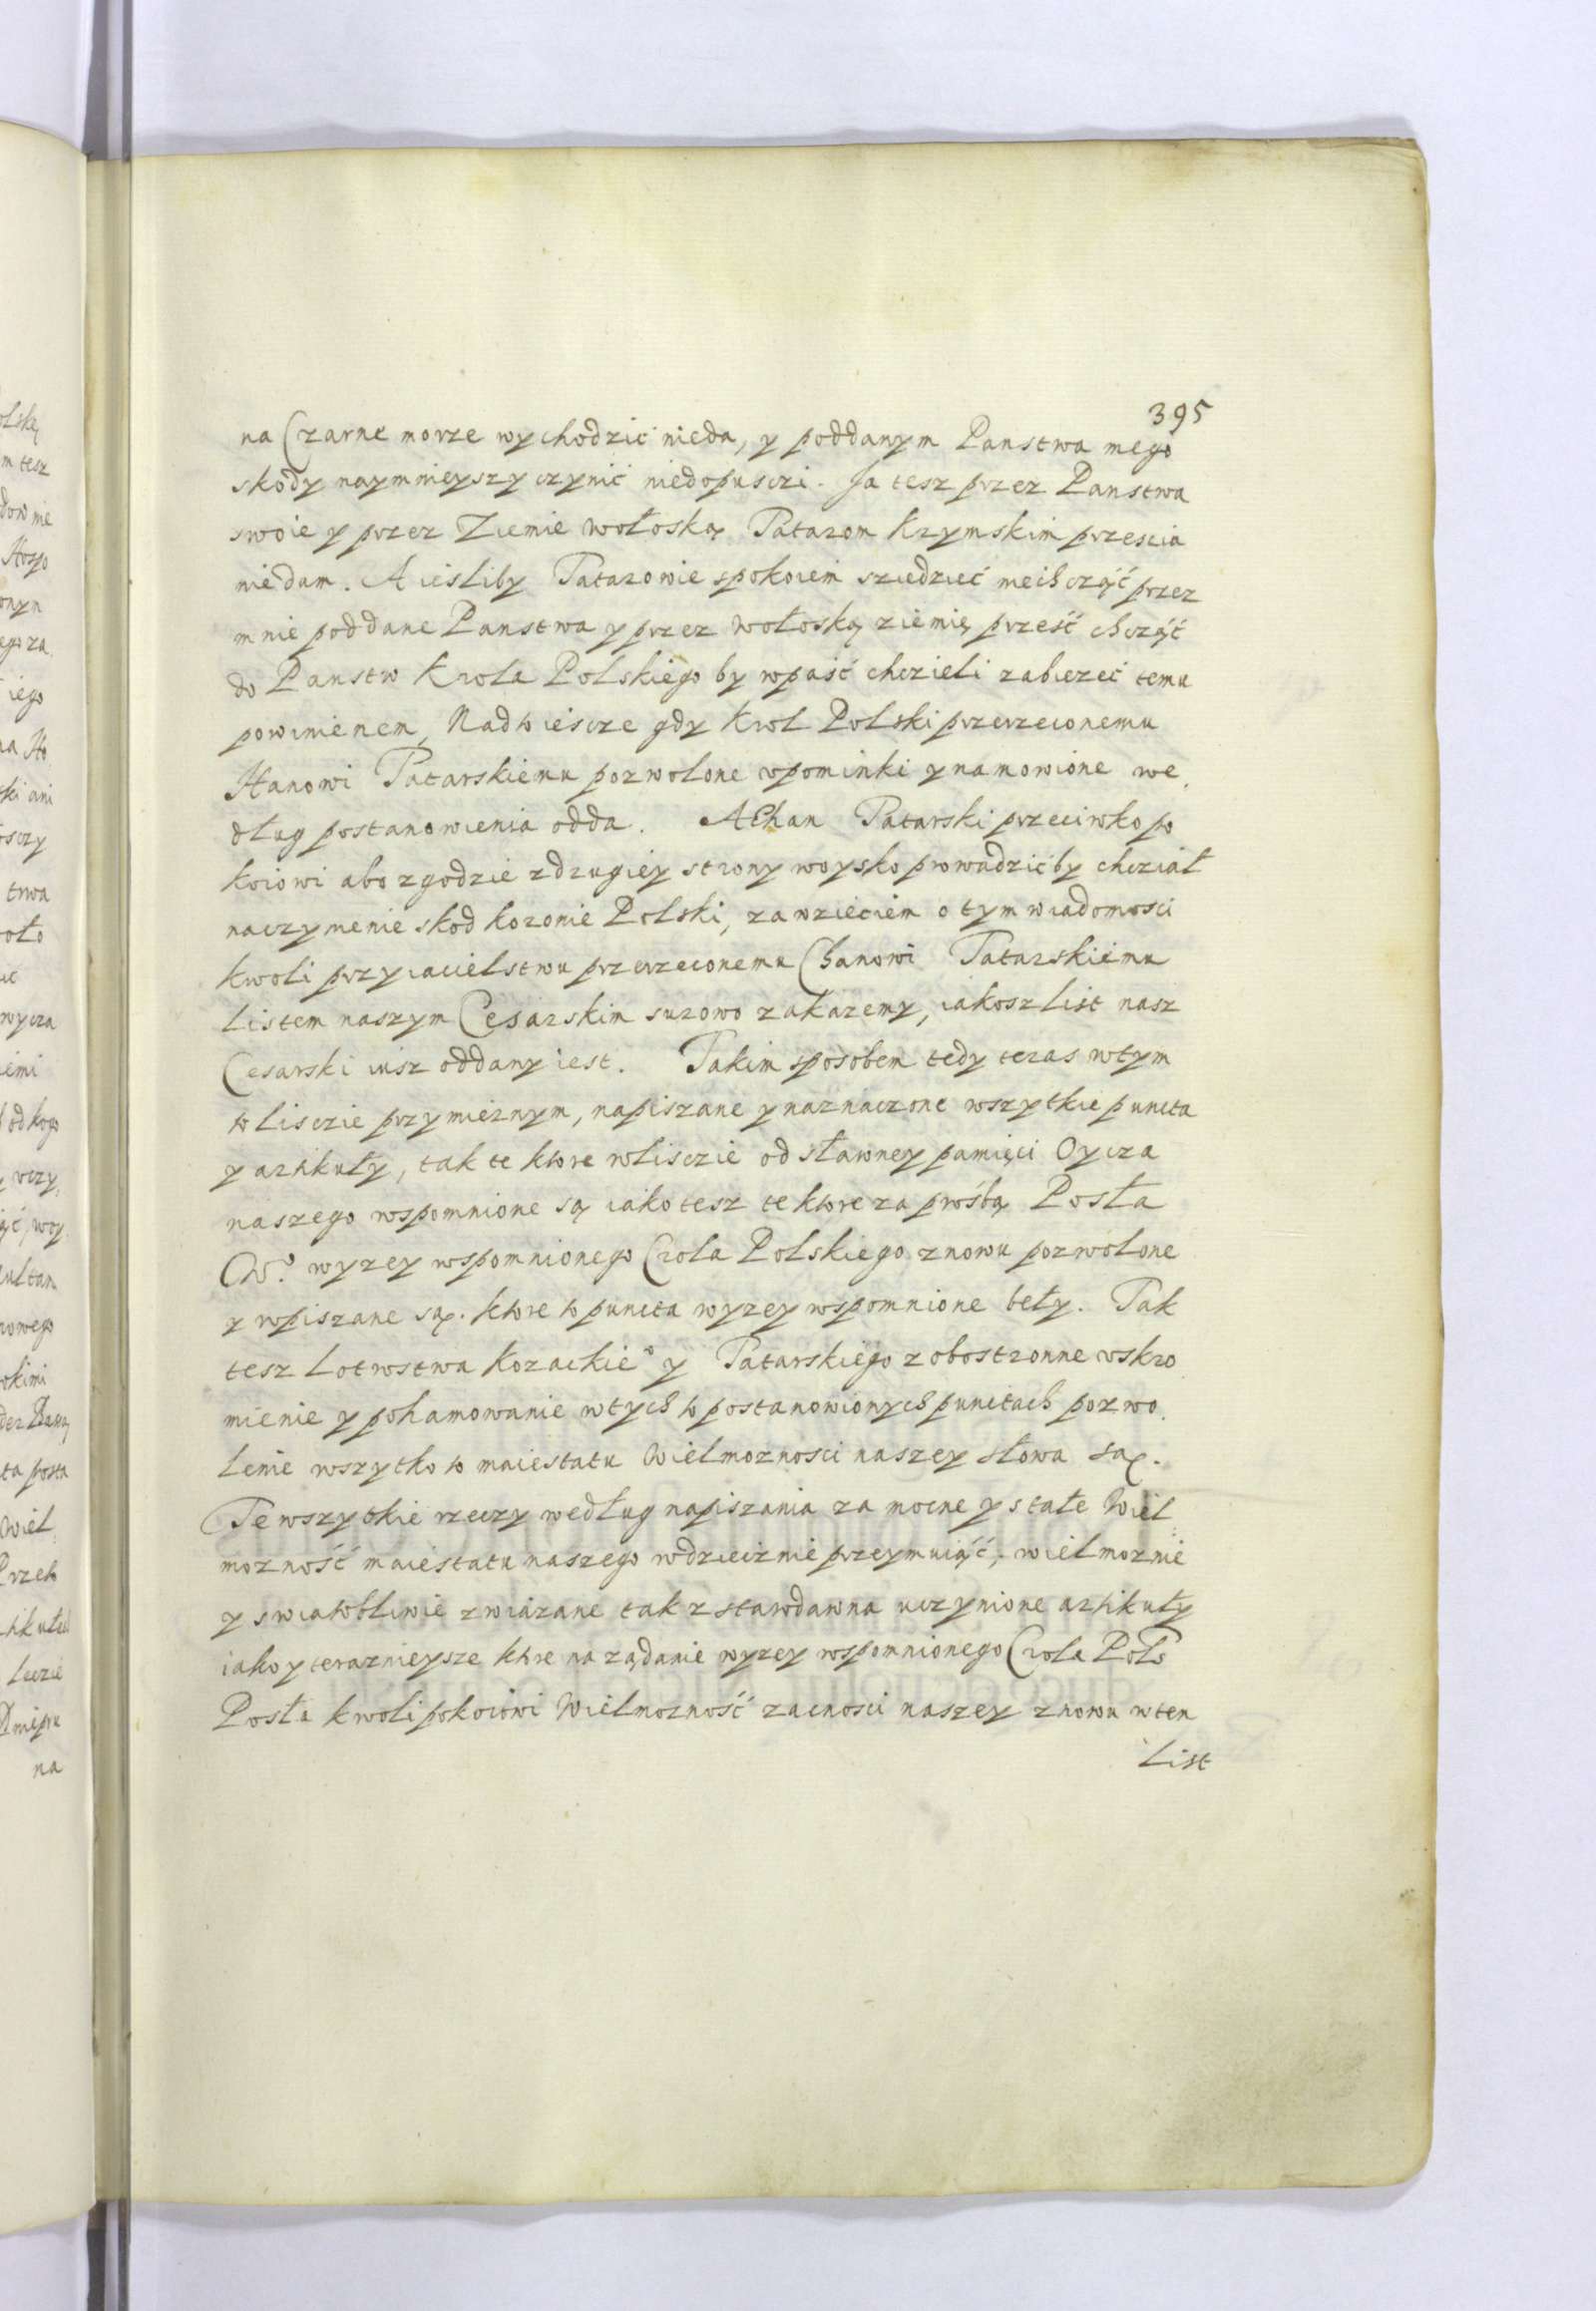 395
na Czarne morze wychodzić nieda, y poddanym Panstwa mego
skody naymnieyszy czynić niedopusczi. Ja tesz przez Panstwa
swoie y przez Ziemie Wołoską Tatarom Krzymskim przescia
niedam. A iesliby Tatarowie spokoiem sziedzieć niechcząć przez
mnie poddane Panstwa y przez Wołoską ziemię prześć chcząć
do Panstw Krola Polskiego by wpaść chczieli zabiezeć temu
powinienem, Nad to iescze gdy Krol Polski przerzeconemu
Hanowi Tatarskiemu pozwolone vpominki y namowione we,
dług postanowienia odda. A Chan Tatarski przeciwko po
koiowi abo zgodzie zdrugiey strony woysko prowadzić by chcział
na czynienie skod koronie Polski, za wzieciem o tym wiadomosci
kwoli przyiacielstwu przerzeconemu Chanowi Tatarskiemu
Listem naszym Cesarskim surowo zakazemy, iakosz list nasz
Cesarski iusz oddany iest. Takim sposobem tedy teras wtym
to lisczie przymieznym, napiszane y naznaczone wszytkie puncta
y artikuły, tak te ktore wlisczie od sławney pamięci Oycza
naszego wspomnione są iako tesz te ktore za prośbą Posła
W°. wyzey wspomnionego Crola Polskiego znowu pozwolone
y wpiszane są. ktore to puncta wyzey wspomnione beły. Tak
tesz Lotrostwa Kozackie° y Tatarskiego z obostronne vskro,
mienie y pohamowanie wtych to postanowionych punctach pozwo,
lenie wszytko to maiestatu Wielmoznosci naszey słowa są.
Te wszytkie rzeczy według napiszania za mocne y stałe Wiel
mozność maiestatu naszego wdziecznie przeymuiąć, wielmoznie
y swiatobliwie zwiazane tak z stawdawna uczynione artikuły
iako y teraznieysze ktore na ządanie wyzey wspomnionego Crola Pols
Posła kwoli pokoiowi Wielmozność zacnosci naszey znowu w ten
List